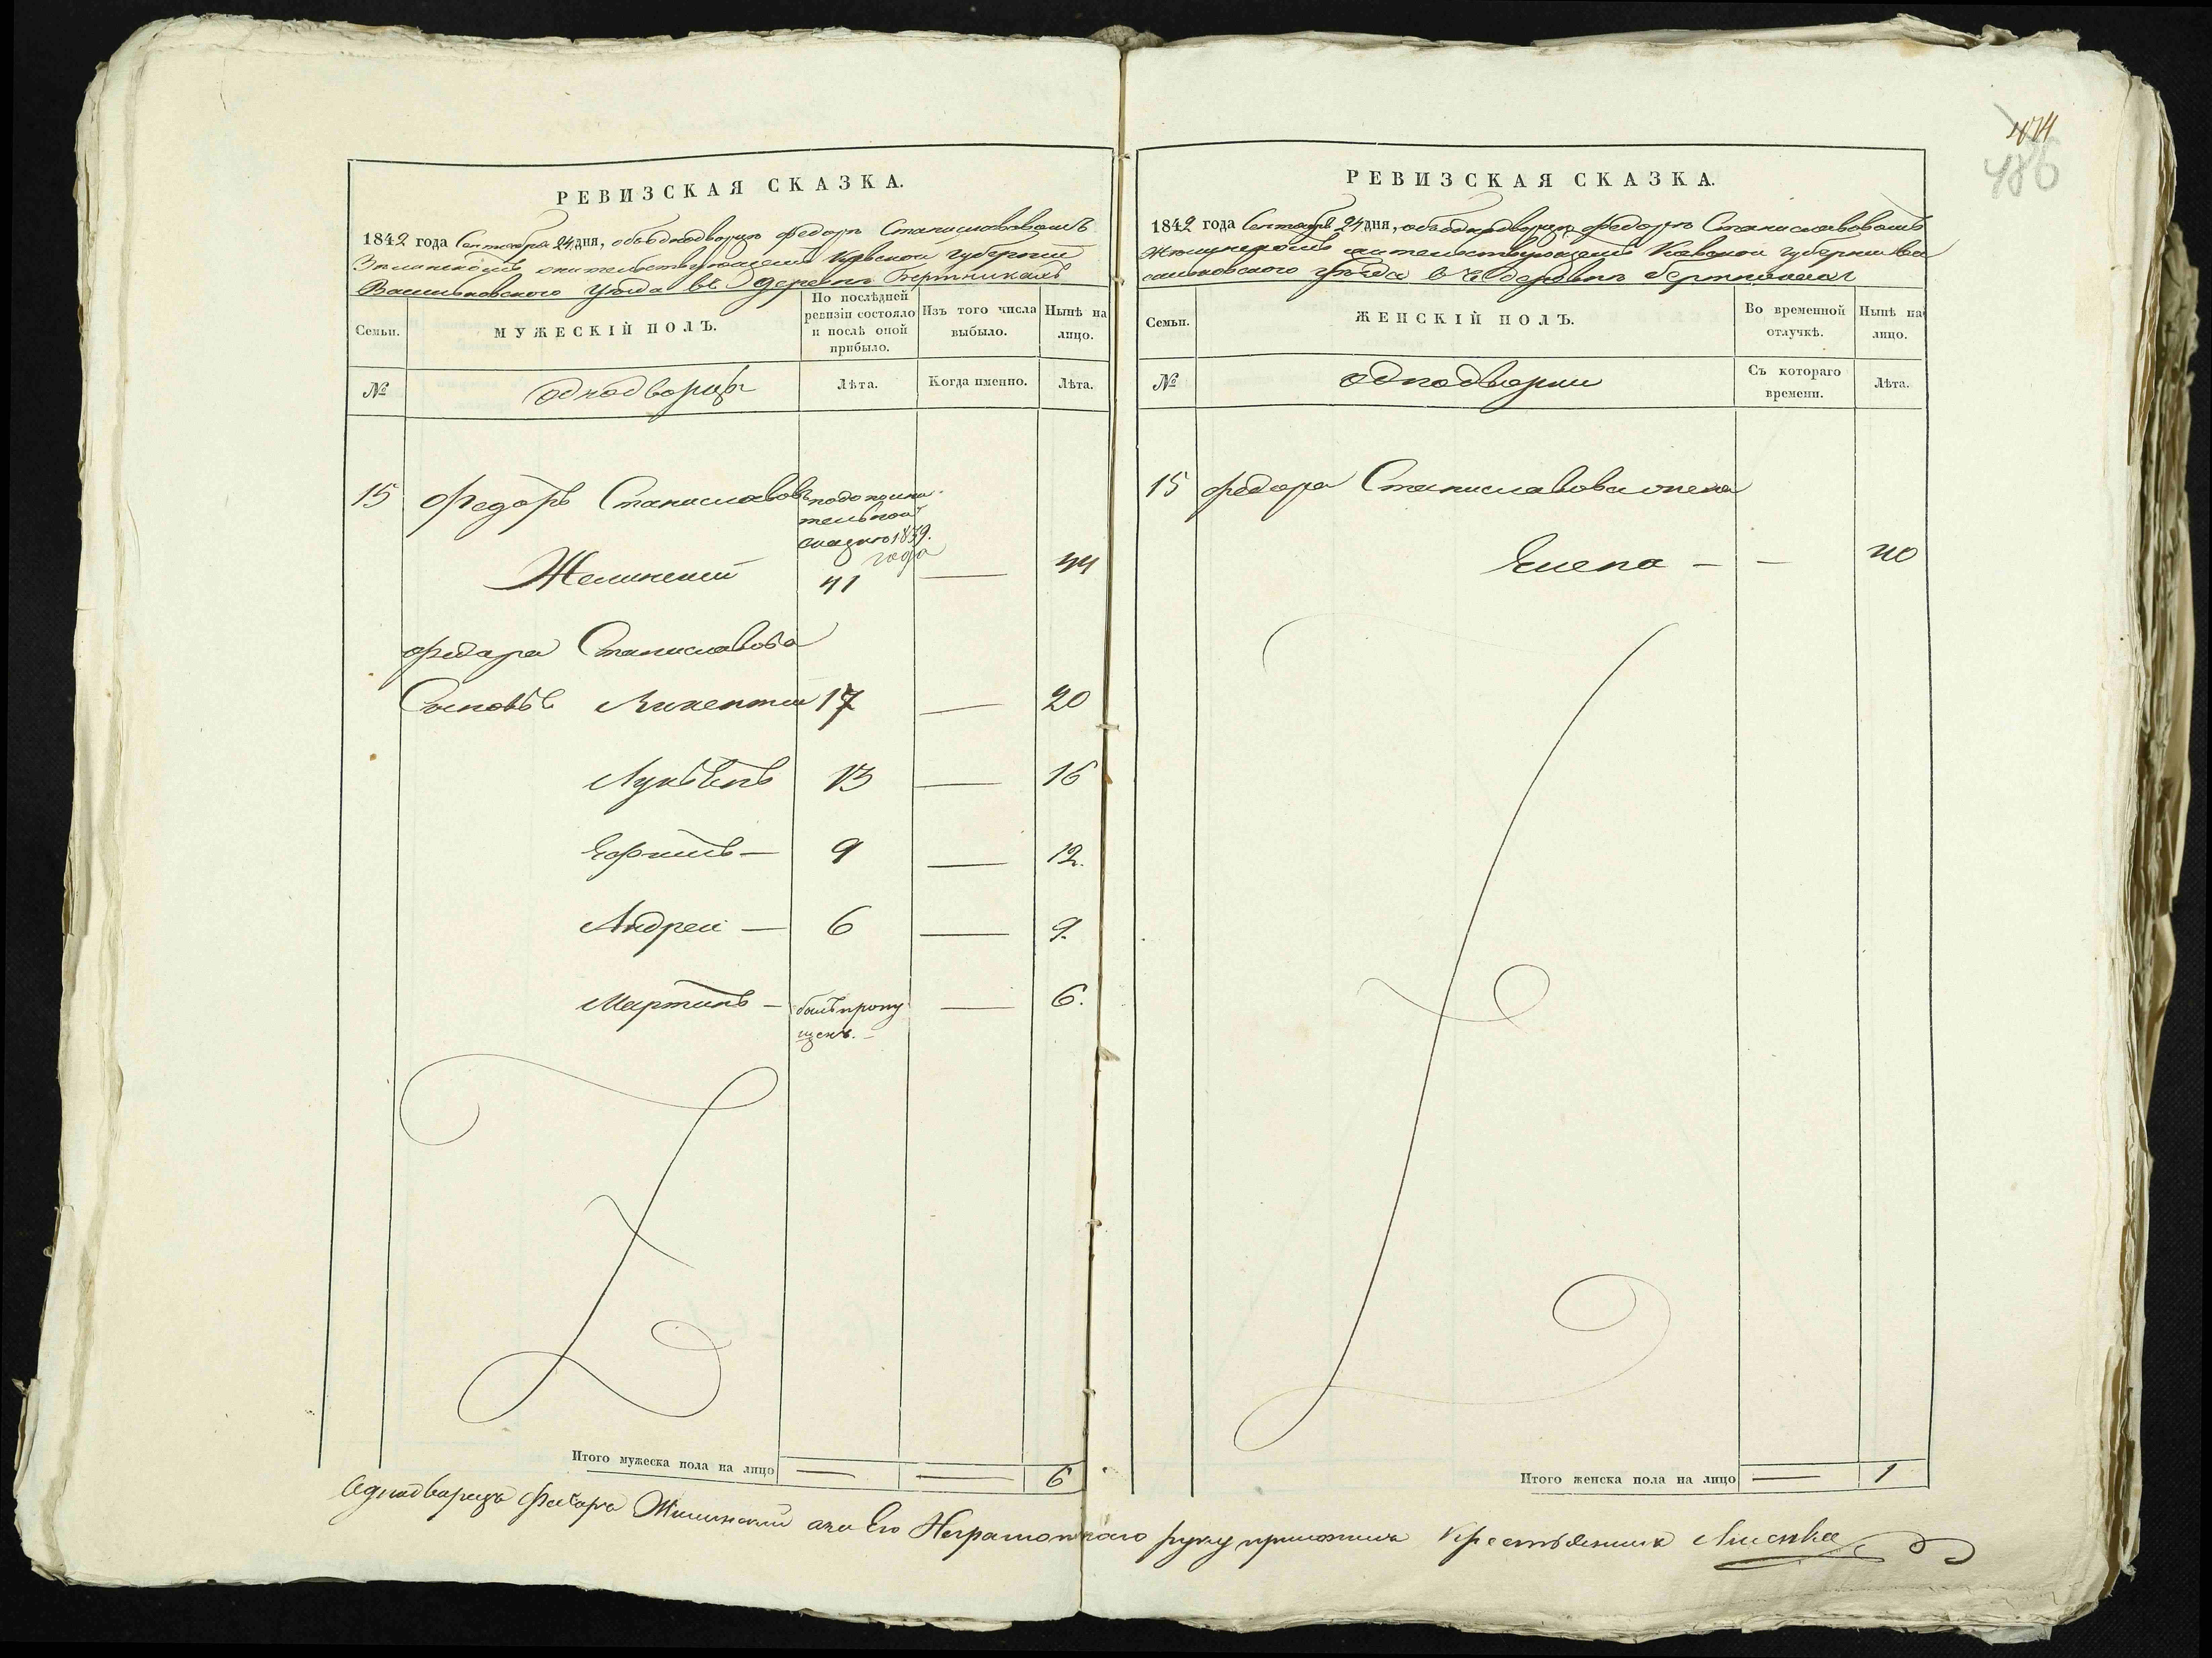 474
486
РЕВИЗСКАЯ СКАЗКА.
1842 года Сентября 24 дня, объ однодворцѣ Федорѣ Станиславовомъ
жительствующемъ Кіевской Губерніи
Васильковскаго Уѣзда въ деревнѣ
Семьи.
МУЖЕСКІЙ ПОЛЪ.
По послѣдней ревизіи состояло и послѣ оной прибыло.
Изъ того числа выбыло.
Нынѣ на лицо.
№
однодворцы
Лѣта.
Когда именно.
Лѣта.
15 Федоръ Станиславовъ по дополни-
тельной
сказкѣ 1839.
года
Желинский 41 — 44
Федора Станиславова
Сыновья Викентий 17 — 20
Лукьянъ 13 — 16
9 — 12.
Андреи — 6 — 9.
Мартинъ — былъ пропу
щенъ. — 6.
Итого мужеска пола на лицо — — 6
РЕВИЗСКАЯ СКАЗКА.
1842 года Сентября 24 дня, объ однодворцѣ Федорѣ Станиславовомъ
жительствующемъ Киевской Губернии Ва
сильковского уѣзда в деревнѣ
Семьи.
ЖЕНСКІЙ ПОЛЪ.
Во временной отлучкѣ.
Нынѣ на лицо.
№
однодворки
Съ котораго времени.
Лѣта.
15 Федора Станиславова жена
Елена — — 40
Итого женска пола на лицо — 1
Однодворецъ Федоръ Жилинский а за Его Неграмотнаго руку приложилъ Крестьянинъ